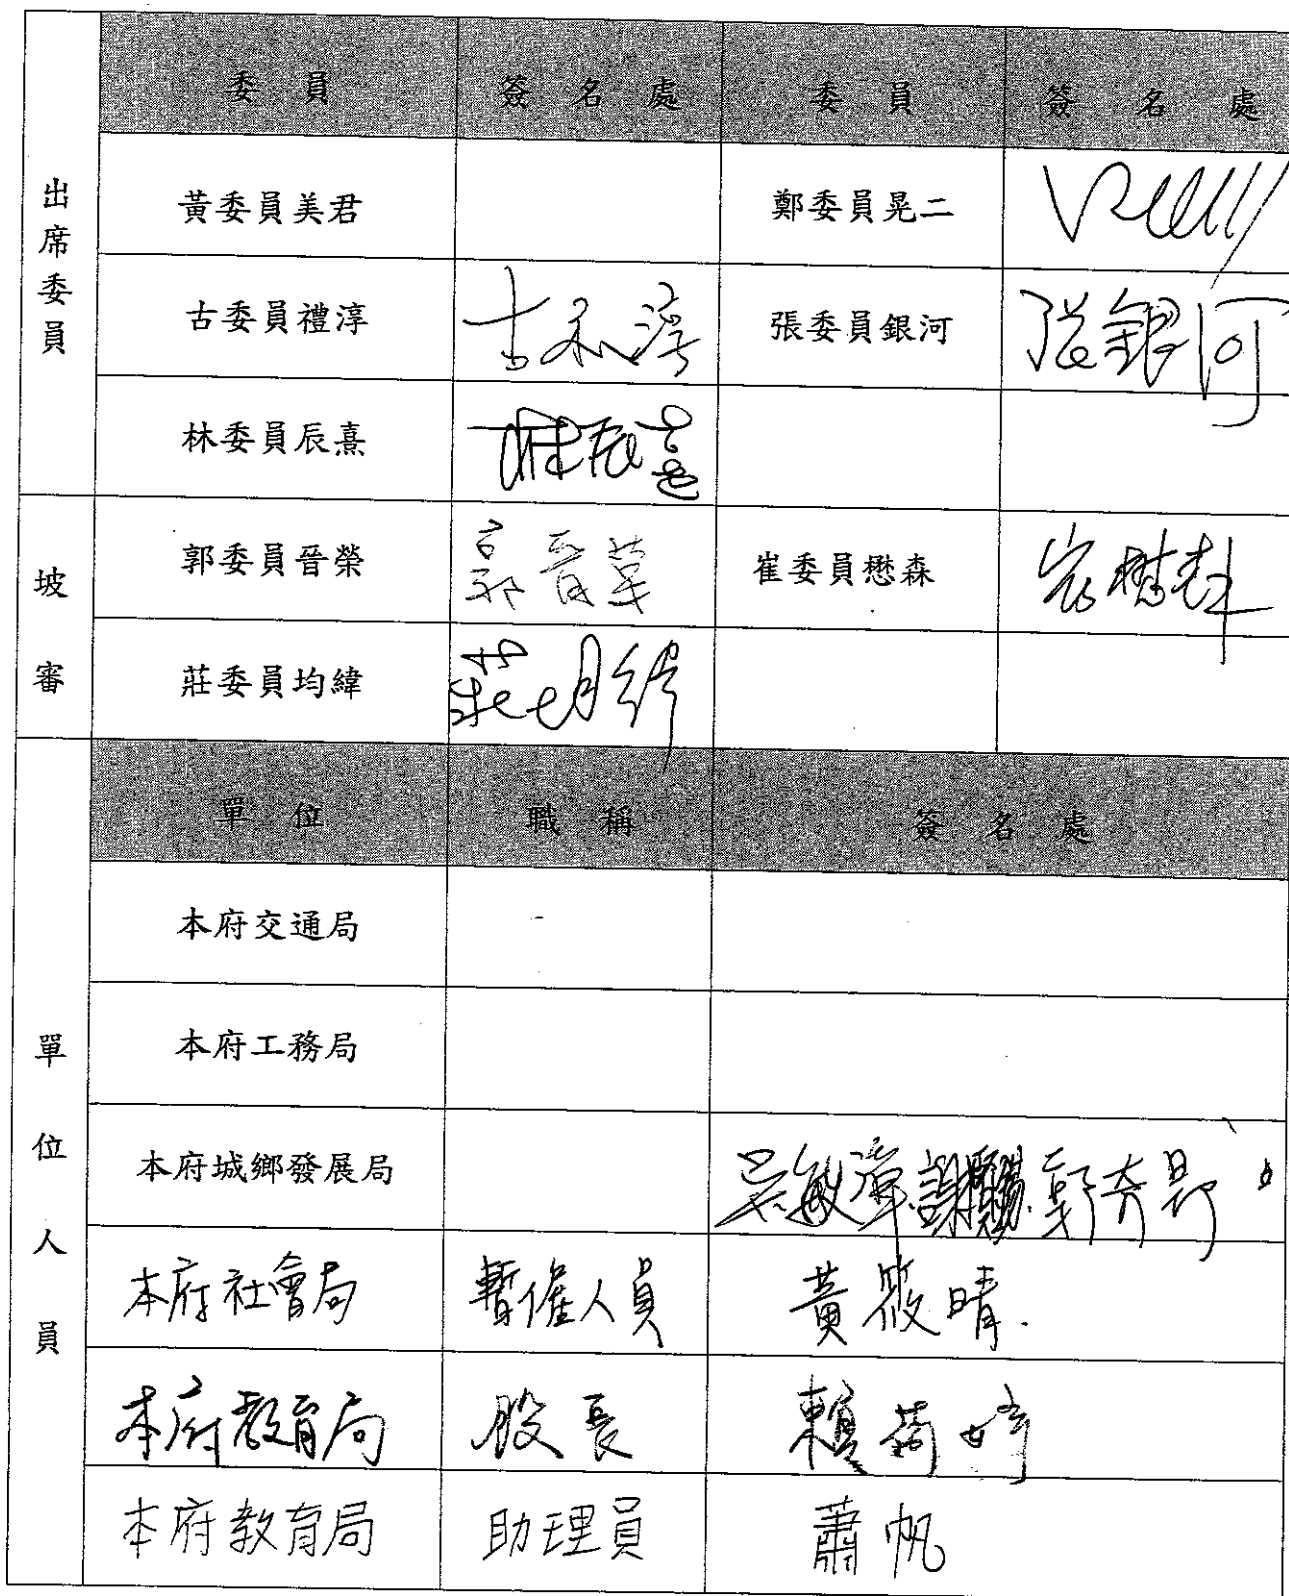 委員 簽名處 委員 簽名處
出席委員
黃委員美君 鄭委員晃二
古委員禮淳 古礼淳 張委員銀河 張銀河
林委員辰熹 林辰熹
坡審
郭委員晉榮 郭晉榮 崔委員懋森 崔懋森
莊委員均緯 莊均緯
單位 職稱 簽名處
單位人員
本府交通局
本府工務局
本府城鄉發展局 吳敏濱 郭奇昂
本府社會局 暫僱人員 黃筱晴.
本府教育局 股長 賴荷婷
本府教育局 助理員 蕭帆